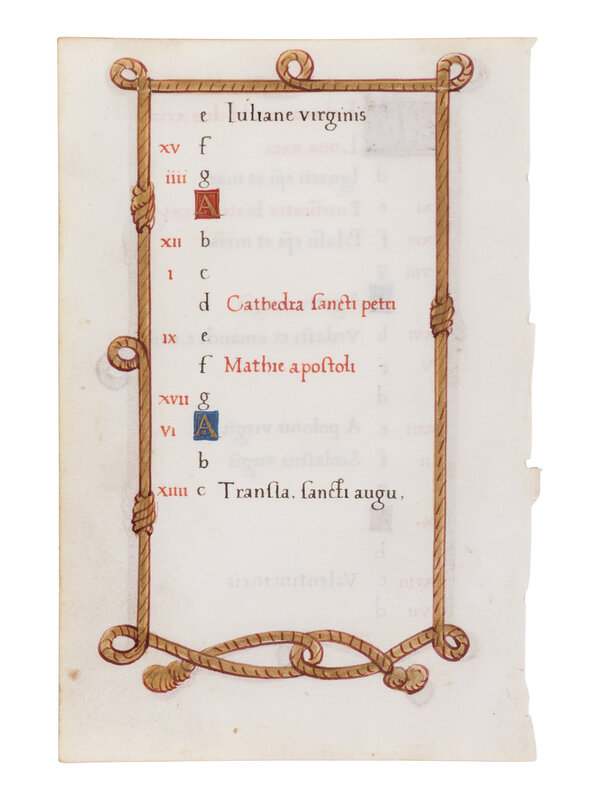 e Iuliane virginis
xv f
iiii g
A
xii b
i c
d Cathedra sancti petri
ix e
f Mathie apostoli
xvii g
vi A
b
xiiii c Transla. sancti augu.